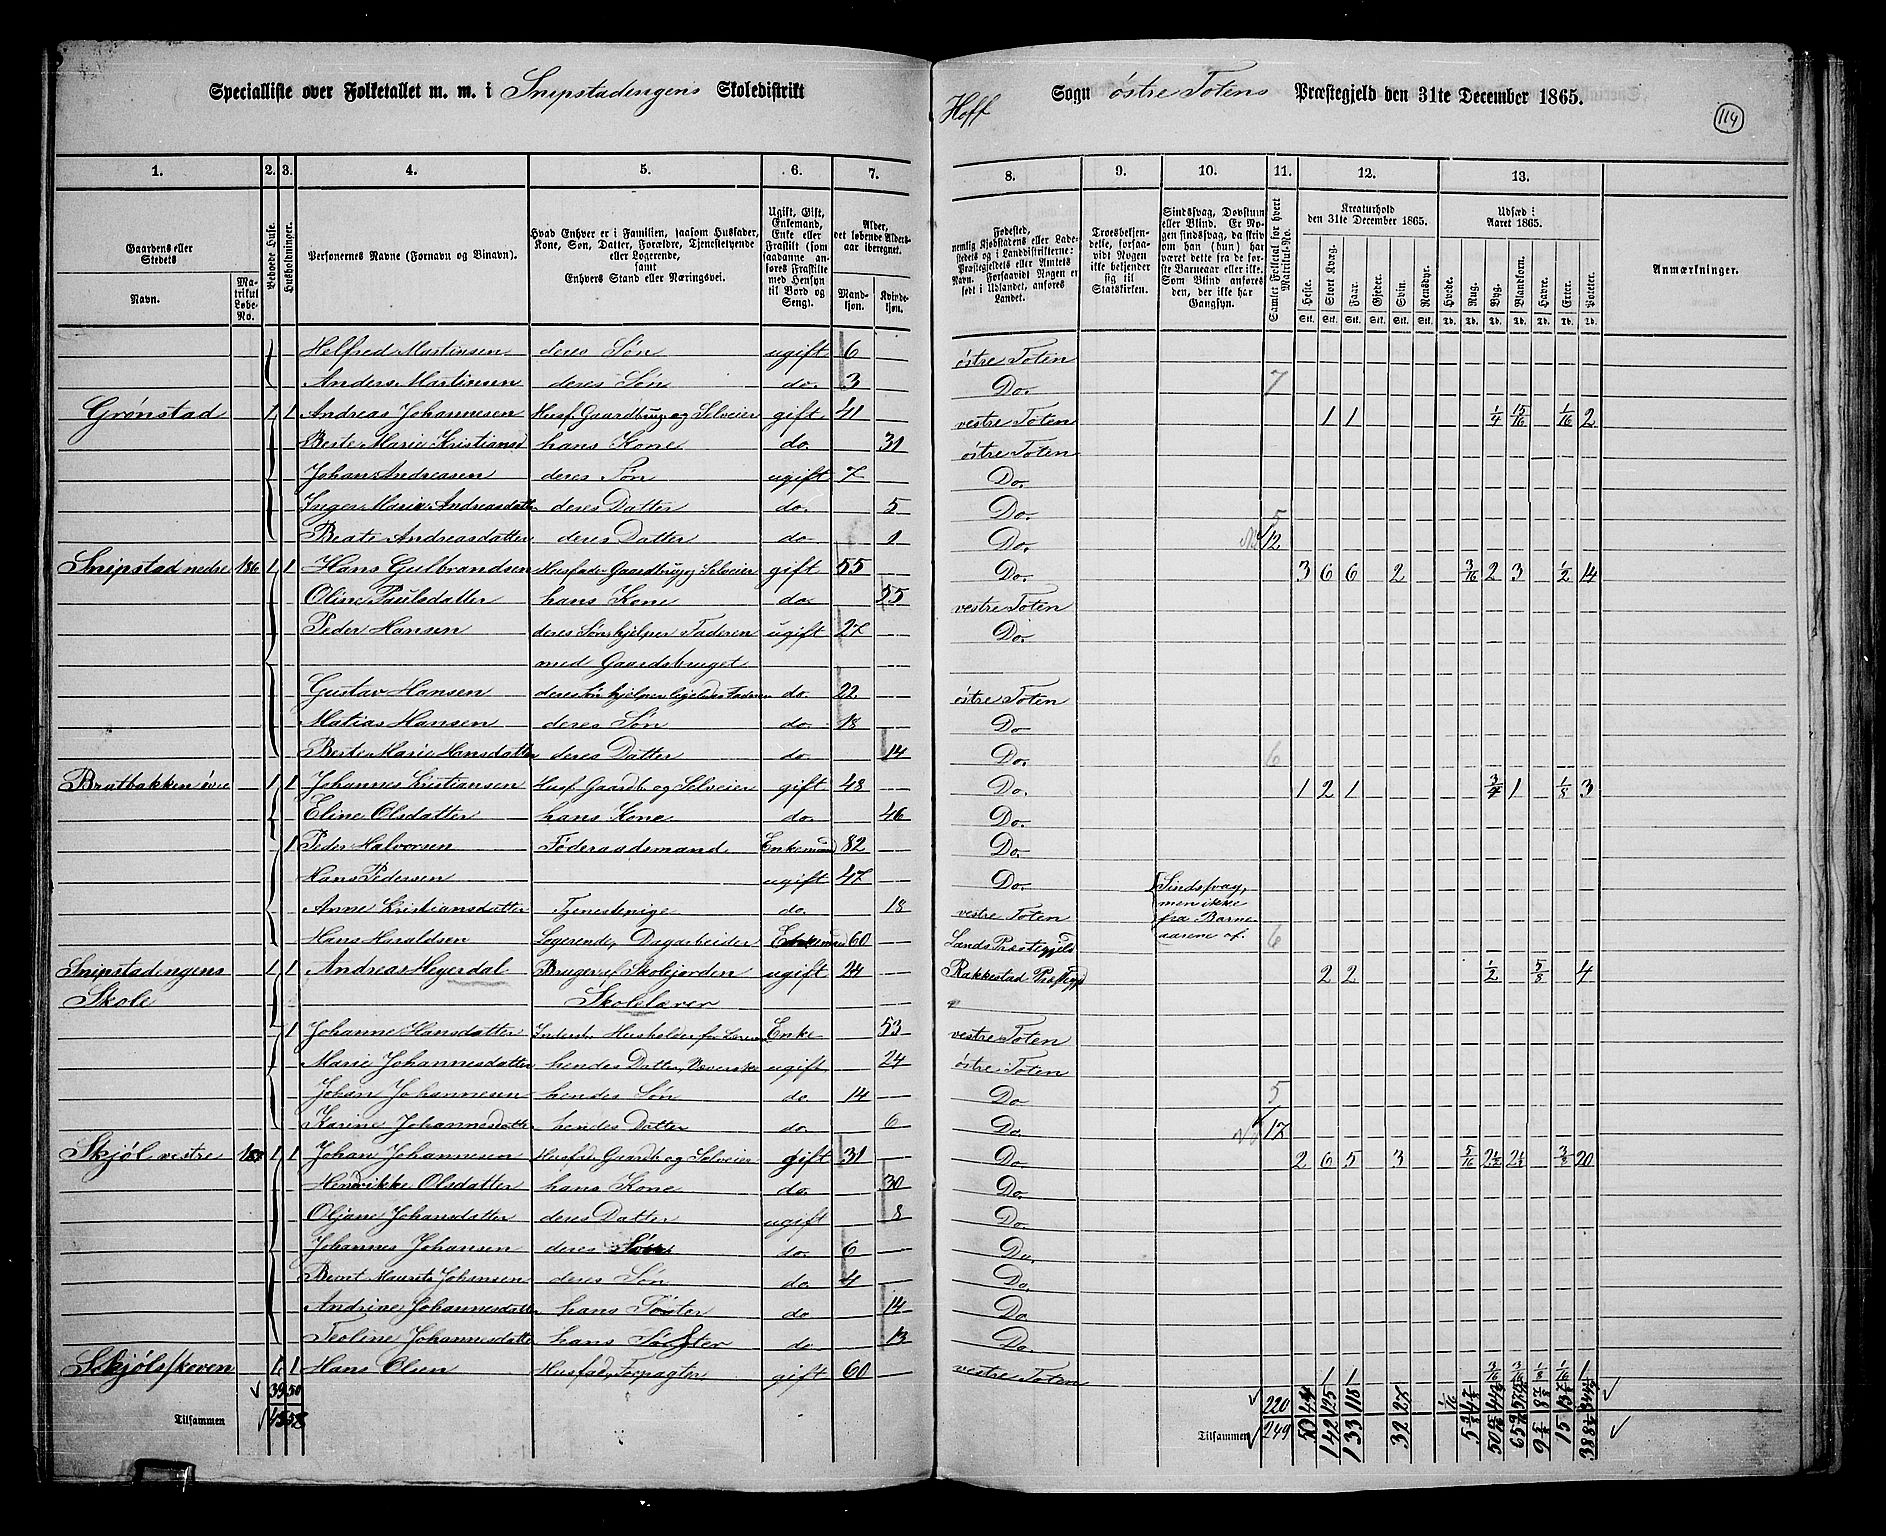 Specialliste over Folketallet m. m. i Snipstadengens Skoledistrikt Hoff Sogn østre Totens Præstegjeld den 31te December 1865.
119
1. 2. 3. 4. 5. 6. 7. 8. 9. 10. 11. 12. 13.
Gaardens eller Stedets
Navn.
Matrikul Løbe-No.
Beboede Huse.
Husholdninger.
Personernes Navne (Fornavn og Binavn).
Hvad Enhver er i Familien, saasom Husfader, Kone, Søn, Datter, Forældre, Tjenestetyende eller Logerende, samt Enhvers Stand eller Næringsvei.
Ugift, Gift, Enkemand, Enke eller Fraskilt (som saadanne anføres Fraskilte med Hensyn til Bord og Seng).
Alder, det løbende Aldersaar iberegnet.
Mandkjøn. Kvindekjøn.
Fødested, nemlig Kjøbstadens eller Ladestedets og i Landdistrikterne Præstegjeldets eller Amtets Navn. Forsaavidt Nogen er født i Udlandet, anføres Landet.
Troesbekjendelse, forsaavidt Nogen ikke bekjender sig til Statskirken.
Sindssvag, Døvstum eller Blind. Er Nogen sindssvag, da skrives om han (hun) har været dette fra de første Barneaar eller ikke. Som Blind anføres den, der ikke har Gangsyn.
Samlet Folketal for hvert Matrikul-No.
Kreaturhold den 31te December 1865.
Heste. Stort Kvæg. Faar. Gjeder. Svin. Rensdyr.
Udsæd i Aaret 1865.
Hvede. Rug. Byg. Blandkorn. Havre. Erter. Poteter.
Anmærkninger.
Helfred Martinsen deres Søn ugift 6 østre Toten
Anders Martinsen deres Søn do. 3 Do. 7
Grønstad 1 1 Andreas Johannesen Husf. Gaardbrug. og Selveier gift 41 vestre Toten 1 1 1/4 15/16 1/16 2
Berte Marie Kristians hans Kone do 31 østre Toten
Johan Andreasen deres Søn ugift 7 Do.
Inger Marie Andreasdatter deres Datter do. 5 Do.
Beate Andreasdatter deres Datter do 1 Do. 5 12
Snipstad nedre 186 1 1 Hans Gulbrandsen Husfader Gaardbrug. og Selveier gift 55 Do. 3 6 6 2 3/16 2 3 1/2 14
Oline Paulsdatter hans Kone do. 55 vestre Toten
Peder Hansen deres Søn, hjelper Faderen ugift 27 Do.
med Gaardsbruget
Gustav Hansen deres Søn hjelper ligeledes Faderen do. 22 østre Toten
Matias Hansen deres Søn do. 18 Do
Berte Marie Hansdatter deres Datter do. 14 Do. 6
Bratbakken øvre 1 1 Johannes Kristiansen Husf. Gaardb. og Selveier gift 48 Do. 1 2 1 3/4 1 1/8 3
Eline Olsdatter hans Kone do. 46 Do.
1 Peder Halvorsen Føderaadsmand Enkemand 82 Do.
Hans Pedersen ugift 47 Do. Sindssvag, men ikke fra Barneaarene af.
Anne Kristiansdatter Tjenestepige do. 18 vestre Toten
Hans Haraldsen Logerende, Dagarbeider Enkemand 60 Lands Præstegjeld 6
Snipstadengens 1 1 Andreas Heyerdal Bruger af Skolejorden ugift 24 Rakkestad Præstegjd 2 2 1/2 5/8 4
Skole Skolelærer
1 Johanne Hansdatter Inderst, Husholder for Læreren Enke 53 vestre Toten
Marie Johannesdatter hendes Datter, Væverske ugift 24 østre Toten
Johan Johannesen hendes Søn do 14 Do 5
Karine Johannesdatter hendes Datter do. 6 Do. 17
Skjøl vestre 187 1 1 Johan Johannesen Husfad. Gaardb. og Selveier gift 31 Do 2 6 5 3 5/16 2 1/2 2 1/2 3/8 20
Hendrikke Olsdatter hans Kone do. 30 Do.
Oljane Johansdatter deres Datter ugift 8 Do.
Johannes Johansen deres Søn do. 6 Do.
Bernt Maurits Johansen deres Søn do 4 Do.
Andrine Johannesdatter hans Søster do 14 Do
Teoline Johannesdatter hans Søster do 13 Do
Skjølsskoven 1 1 Hans Olsen Husfad, Forpagter gift 60 vestre Toten 1 1 3/16 3/16 1/8 1/16 1
39 50 220
Tilsammen Tilsammen 249 50 142 133 32